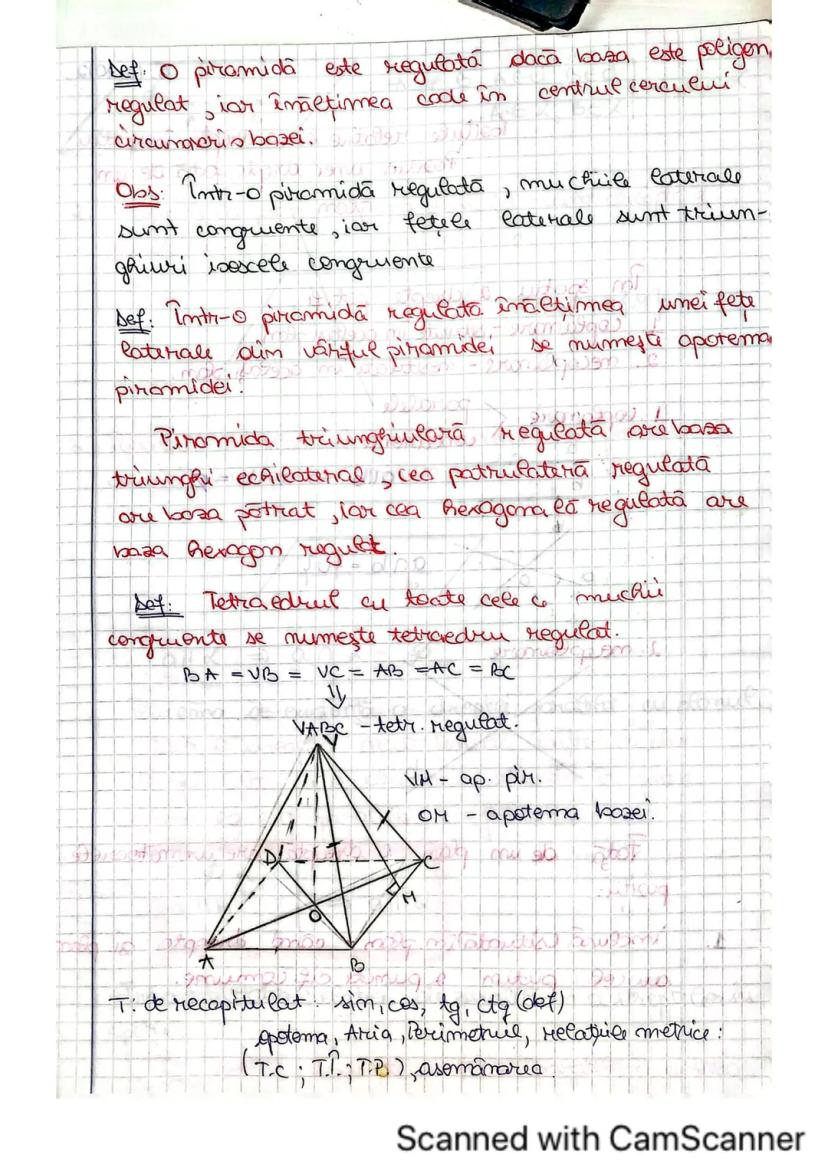 Def. O piramidă este regulată dacă baza este poligon
regulat, iar înălțimea cade în centrul cercului
circumscris bazei.
Obs: Într-o piramidă regulată, muchiile laterale
sunt congruente, iar fețele laterale sunt triun-
ghiuri isoscele congruente
Def: Într-o piramidă regulată înălțimea unei fețe
laterale din vârful piramidei se numește apotema
piramidei.
Piramida triunghiulară regulată are baza
triunghi echilateral, cea patrulateră regulată
are baza pătrat, iar cea hexagonală regulată are
baza hexagon regulat.
Def: Tetraedrul cu toate cele 6 muchii
congruente se numește tetraedru regulat.
BA = VB = VC = AB = AC = BC
⇓
VABC - tetr. regulat.
V
VM - ap. pir.
OM - apotema bazei.
D
C
M
O
A
B
T: de recapitulat: sin, cos, tg, ctg (def)
apotema, Aria, Perimetrul, relațiile metrice:
(T.C; T.Î.; T.P.), asemănarea
Scanned with CamScanner